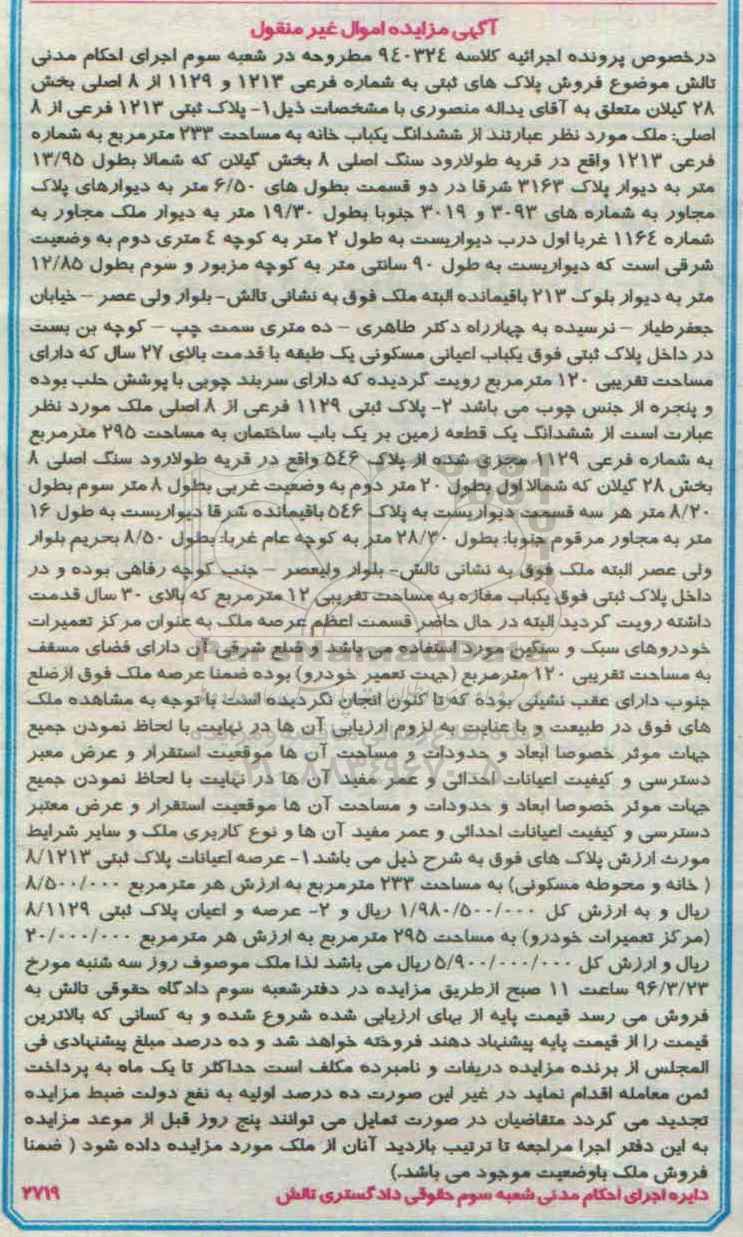 آگهی مزایده اموال غیر منقول
درخصوص پرونده اجرائیه کلاسه ۹٤۰۳۲٤ مطروحه در شعبه سوم اجرای احکام مدنی
تالش موضوع فروش پلاک های ثبتی به شماره فرعی ۱۲۱۳ و ۱۱۲۹ از ۸ اصلی بخش
۲۸ گیلان متعلق به آقای یداله منصوری با مشخصات ذیل۱- پلاک ثبتی ۱۲۱۳ فرعی از ۸
اصلی: ملک مورد نظر عبارتند از ششدانگ یکباب خانه به مساحت ۲۳۳ مترمربع به شماره
فرعی ۱۲۱۳ واقع در قریه طولارود سنگ اصلی ۸ بخش گیلان که شمالا بطول ۱۳/۹۵
متر به دیوار پلاک ۳۱۶۳ شرقا در دو قسمت بطول های ۶/۵۰ متر به دیوارهای پلاک
مجاور به شماره های ۳۰۹۳ و ۳۰۱۹ جنوبا بطول ۱۹/۳۰ متر به دیوار ملک مجاور به
شماره ۱۱۶٤ غربا اول درب دیواریست به طول ۲ متر به کوچه ٤ متری دوم به وضعیت
شرقی است که دیواریست به طول ۹۰ سانتی متر به کوچه مزبور و سوم بطول ۱۲/۸۵
متر به دیوار بلوک ۲۱۳ باقیمانده البته ملک فوق به نشانی تالش- بلوار ولی عصر – خیابان
جعفرطیار – نرسیده به چهارراه دکتر طاهری – ده متری سمت چپ – کوچه بن بست
در داخل پلاک ثبتی فوق یکباب اعیانی مسکونی یک طبقه با قدمت بالای ۲۷ سال که دارای
مساحت تقریبی ۱۲۰ مترمربع رویت گردیده که دارای سربند چوبی با پوشش حلب بوده
و پنجره از جنس چوب می باشد ۲- پلاک ثبتی ۱۱۲۹ فرعی از ۸ اصلی ملک مورد نظر
عبارت است از ششدانگ یک قطعه زمین بر یک باب ساختمان به مساحت ۲۹۵ مترمربع
به شماره فرعی ۱۱۲۹ مجزی شده از پلاک ۵٤۶ واقع در قریه طولارود سنگ اصلی ۸
بخش ۲۸ گیلان که شمالا اول بطول ۲۰ متر دوم به وضعیت غربی بطول ۸ متر سوم بطول
۸/۲۰ متر هر سه قسمت دیواریست به پلاک ۵٤۶ باقیمانده شرقا دیواریست به طول ۱۶
متر به مجاور مرقوم جنوبا: بطول ۲۸/۳۰ متر به کوچه عام غربا: بطول ۸/۵۰ بحریم بلوار
ولی عصر البته ملک فوق به نشانی تالش- بلوار ولیعصر – جنب کوچه رفاهی بوده و در
داخل پلاک ثبتی فوق یکباب مغازه به مساحت تقریبی ۱۲ مترمربع که بالای ۳۰ سال قدمت
داشته رویت گردید البته در حال حاضر قسمت اعظم عرصه ملک به عنوان مرکز تعمیرات
خودروهای سبک و سنگین مورد استفاده می باشد و ضلع شرقی آن دارای فضای مسقف
به مساحت تقریبی ۱۲۰ مترمربع (جهت تعمیر خودرو) بوده ضمنا عرصه ملک فوق ازضلع
جنوب دارای عقب نشینی بوده که تا کنون انجان نگردیده است با توجه به مشاهده ملک
های فوق در طبیعت و با عنایت به لزوم ارزیابی آن ها در نهایت با لحاظ نمودن جمیع
جهات موثر خصوصا ابعاد و حدودات و مساحت آن ها موقعیت استقرار و عرض معبر
دسترسی و کیفیت اعیانات احداثی و عمر مفید آن ها در نهایت با لحاظ نمودن جمیع
جهات موثر خصوصا ابعاد و حدودات و مساحت آن ها موقعیت استقرار و عرض معتبر
دسترسی و کیفیت اعیانات احداثی و عمر مفید آن ها و نوع کاربری ملک و سایر شرایط
مورث ارزش پلاک های فوق به شرح ذیل می باشد۱- عرصه اعیانات پلاک ثبتی ۸/۱۲۱۳
( خانه و محوطه مسکونی) به مساحت ۲۳۳ مترمربع به ارزش هر مترمربع ۸/۵۰۰/۰۰۰
ریال و به ارزش کل ۱/۹۸۰/۵۰۰/۰۰۰ ریال و ۲- عرصه و اعیان پلاک ثبتی ۸/۱۱۲۹
(مرکز تعمیرات خودرو) به مساحت ۲۹۵ مترمربع به ارزش هر مترمربع ۲۰/۰۰۰/۰۰۰
ریال و ارزش کل ۵/۹۰۰/۰۰۰/۰۰۰ ریال می باشد لذا ملک موصوف روز سه شنبه مورخ
۹۶/۳/۲۳ ساعت ۱۱ صبح ازطریق مزایده در دفترشعبه سوم دادگاه حقوقی تالش به
فروش می رسد قیمت پایه از بهای ارزیابی شده شروع شده و به کسانی که بالاترین
قیمت را از قیمت پایه پیشنهاد دهند فروخته خواهد شد و ده درصد مبلغ پیشنهادی فی
المجلس از برنده مزایده دریفات و نامبرده مکلف است حداکثر تا یک ماه به پرداخت
ثمن معامله اقدام نماید در غیر این صورت ده درصد اولیه به نفع دولت ضبط مزایده
تجدید می گردد متقاضیان در صورت تمایل می توانند پنج روز قبل از موعد مزایده
به این دفتر اجرا مراجعه تا ترتیب بازدید آنان از ملک مورد مزایده داده شود ( ضمنا
فروش ملک باوضعیت موجود می باشد.)
دایره اجرای احکام مدنی شعبه سوم حقوقی دادگستری تالش ۲۷۱۹
ParsNamadData